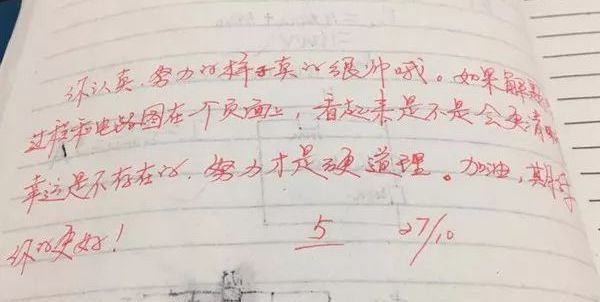 你认真、努力的样子真的很帅哦。如果解题
过程和电路图在一个页面上，看起来是不是会更清晰
幸运是不存在的，努力才是硬道理。加油，期待
你的更好！
5 27/10